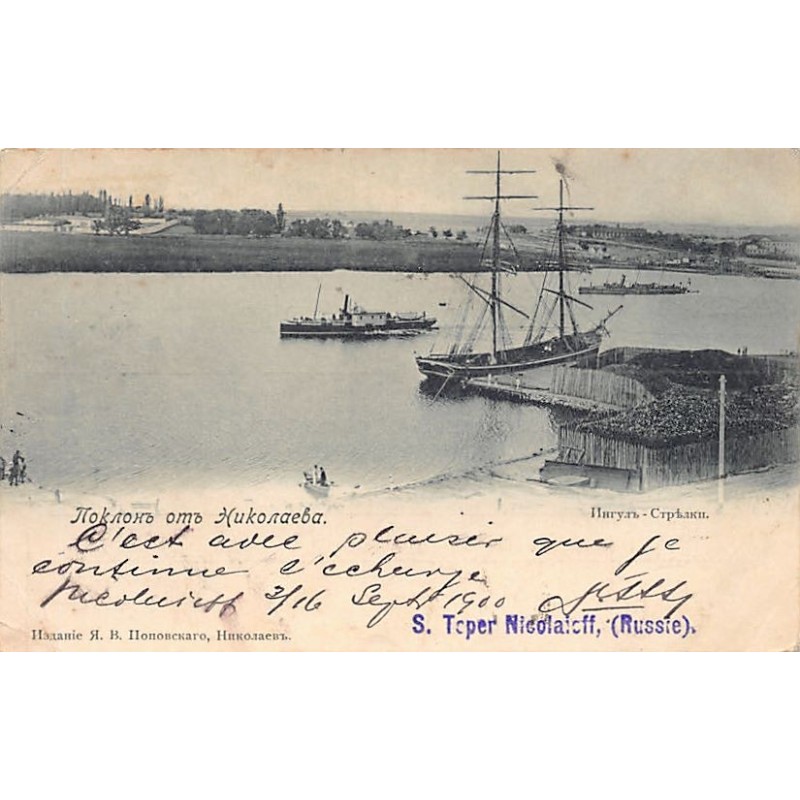 Поклонъ отъ Николаева.
Ингулъ - Стрѣлки.
C'est avec plaisir que je
continue l'echange
Nicolaieff 3/16 Sept 1900
S. Toper Nicolaieff, (Russie).
Изданіе Я. В. Поповскаго, Николаевъ.